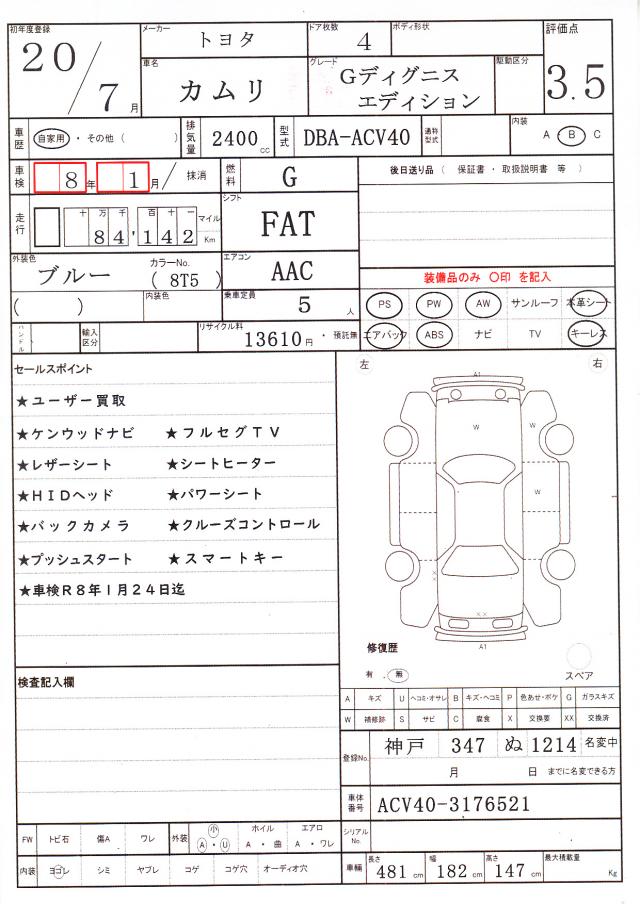 初年度登録 メーカー ドア枚数 ボディ形状 評価点
20/7月 トヨタ 4
車名 グレード 駆動区分
カムリ Gディグニス エディション 3.5
車歴 自家用・その他( ) 排気量 2400cc 型式 DBA-ACV40 通称型式 内装 A・B C
車検 8年 1月/抹消 燃料 G 後日送り品 ( 保証書・取扱説明書 等 )
走行 十万千百十一 マイル Km シフト
84,142 FAT
外装色 カラーNo. エアコン
ブルー ( 8T5 ) AAC 装備品のみ 〇印 を記入
( ) 内装色 乗車定員 5人
PS PW AW サンルーフ 本革シート
ハンドル 輸入区分 リサイクル料 13610円・預託無
エアバック ABS ナビ TV キーレス
セールスポイント
左 右
★ユーザー買取
★ケンウッドナビ ★フルセグTV
★レザーシート ★シートヒーター
★HIDヘッド ★パワーシート
★バックカメラ ★クルーズコントロール
★プッシュスタート ★スマートキー
★車検R8年1月24日迄
A1
W W
W
X X
XX
A1
修復歴
有 . 無 スペア
検査記入欄
A キズ U ヘコミ・オサレ B キズ・ヘコミ P 色あせ・ボケ G ガラスキズ
W 補修跡 S サビ C 腐食 X 交換要 XX 交換済
登録No. 神戸 347 ぬ 1214 名変中
月 日 までに名変できる方
車体番号 ACV40-3176521
シリアルNo.
FW トビ石 傷A ワレ 外装 小 A・U ホイル A・曲 エアロ A・ワレ
内装 ヨゴレ シミ ヤブレ コゲ コゲ穴 オーディオ穴
車輌 長さ 481cm 幅 182cm 高さ 147cm 最大積載量 Kg